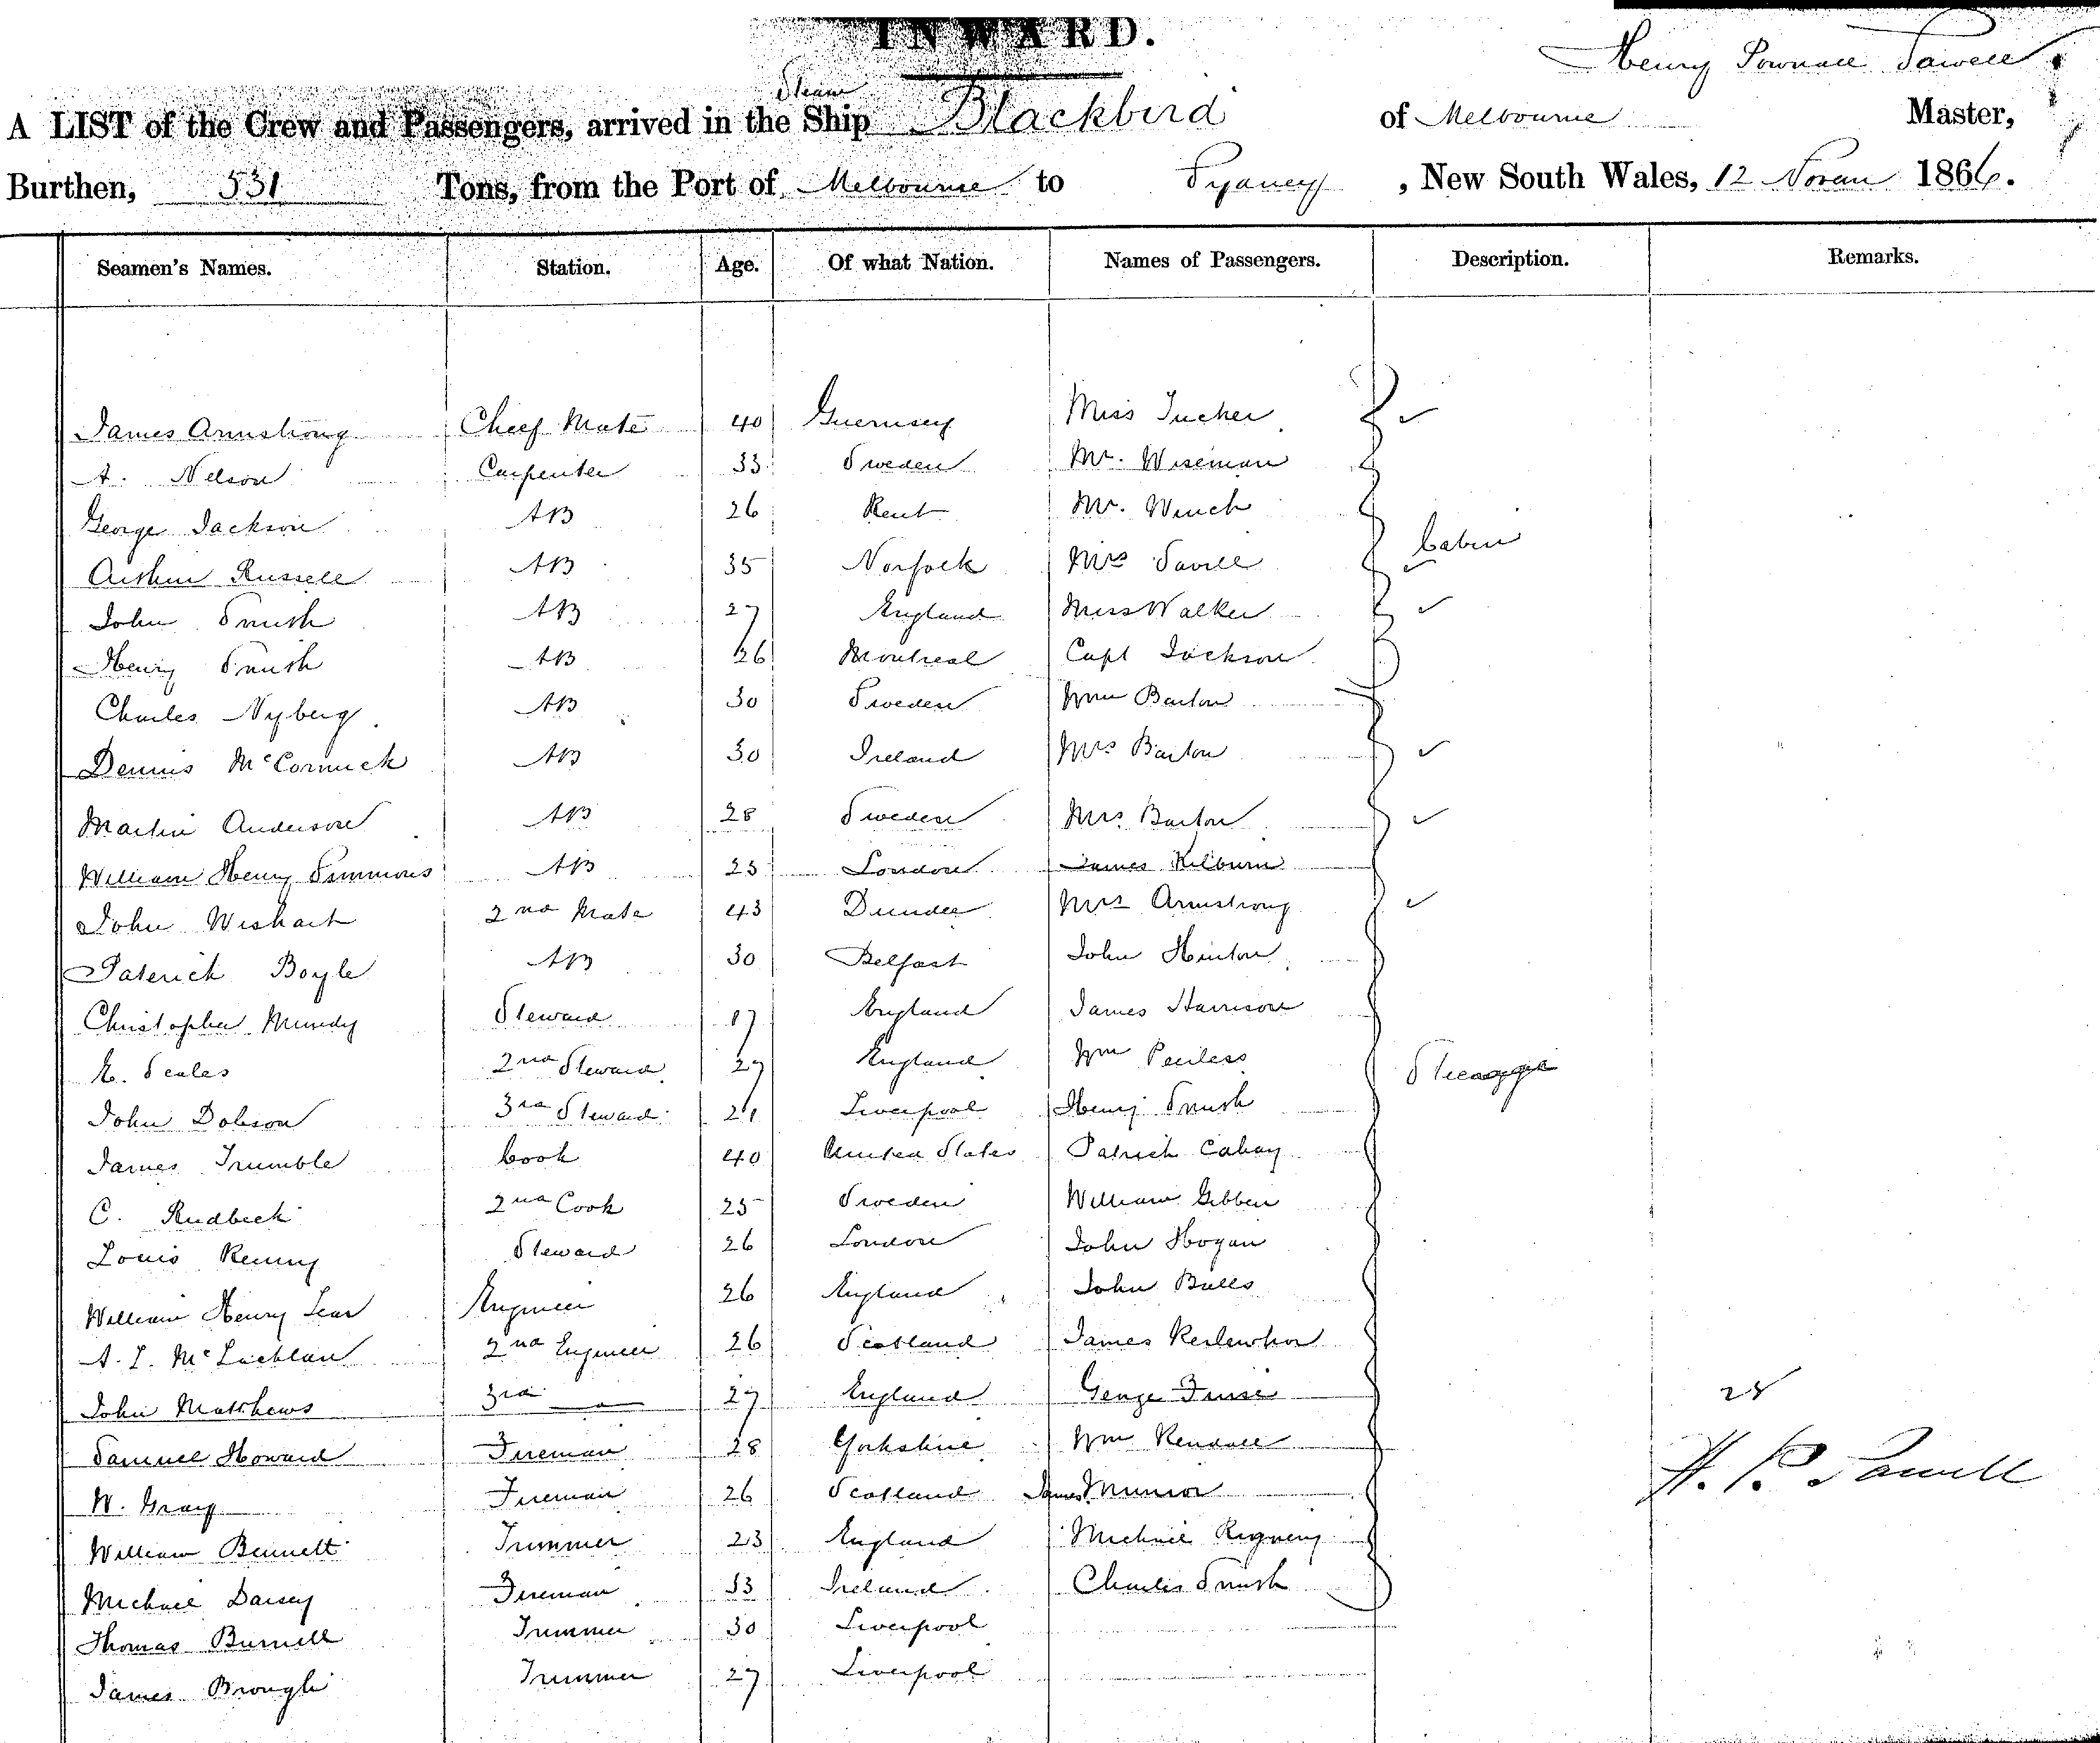 INWARD.
Henry
A LIST of the Crew and Passengers, arrived in the Steam Ship Blackbird of Melbourne Master,
Burthen, 531 Tons, from the Port of Melbourne to Sydney, New South Wales, 12 Novem 1866.
Seamen's Names. Station. Age. Of what Nation. Names of Passengers. Description. Remarks.
James Armstrong Chief Mate 40 Guernsey Miss Tucker
A. Nelson Carpenter 33 Sweden Mr. Wiseman
George Jackson AB 26 Kent Mr. Winch
Arthur Russell AB 35 Norfolk Mrs Cabin
John Smith AB 27 England Miss Walker
Henry Smith AB 26 Montreal Capt Jackson
Charles Nyberg AB 30 Sweden Wm Barton
Dennis McCormick AB 30 Ireland Mrs Barton
Martin Anderson AB 28 Sweden Mrs Barton
William Henry Simmons AB 25 London James Kilburn
John Wishart 2nd Mate 43 Dundee Mrs Armstrong
Paterick Boyle AB 30 Belfast John Hinton
Christopher Mundy Steward England James Harrison
Scales 2nd Steward 27 England Wm Steerage
John Dobson 3rd Steward 21 Liverpool Henry Smith
James Trumble Cook 40 United States Patrick
C. Rudbeck 2nd Cook 25 Sweden William Gibben
Louis Kenny Steward 26 London John Hogan
William Henry Engineer 26 England John
A. McLachlan 2nd Engineer 26 Scotland James
John Matthews 3rd 27 England George
Samuel Howard Fireman 28 Yorkshire Wm Kendall
W. Gray Fireman 26 Scotland James Munro
William Bennett Trimmer 23 England Michael
Michael Fireman 33 Ireland Charles Smith
Thomas Trimmer 30 Liverpool
James Brough Trimmer 27 Liverpool
H. P.